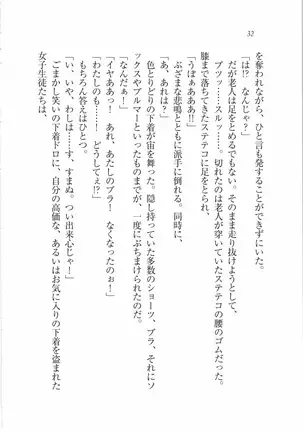 32
を奪われながら、ひと言も発することができずにいた。
「は!?　なんじゃ?」
だが老人は足をとめるでもない。そのまま走り抜けようとして、
ブツッ……ズルッ……。切れたのは老人が穿いていたステテコの腰のゴムだった。
膝まで落ちてきたステテコに足をとられ、
「うぼぁあああ!!」
ぶざまな悲鳴とともに派手に倒れる。同時に、
「あ、あれは?」
色とりどりの下着が宙を舞った。隠し持っていた多数のショーツ、ブラ、それにソ
ックスやブルマーといったものまでが、一度にぶちまけられたのだ。
「なんだぁ!」
「イヤああっ!　あれ、あたしのブラ!　なくなったのぉ!」
「わたしのも……!　どうしてぇ!?」
もちろん答えはひとつ。
「い、いや、わしは……す、すまぬ。つい出来心じゃ!」
ごまかし笑いの下着ドロに、自分の高価な、あるいはお気に入りの下着を盗まれた
女子生徒たちは、